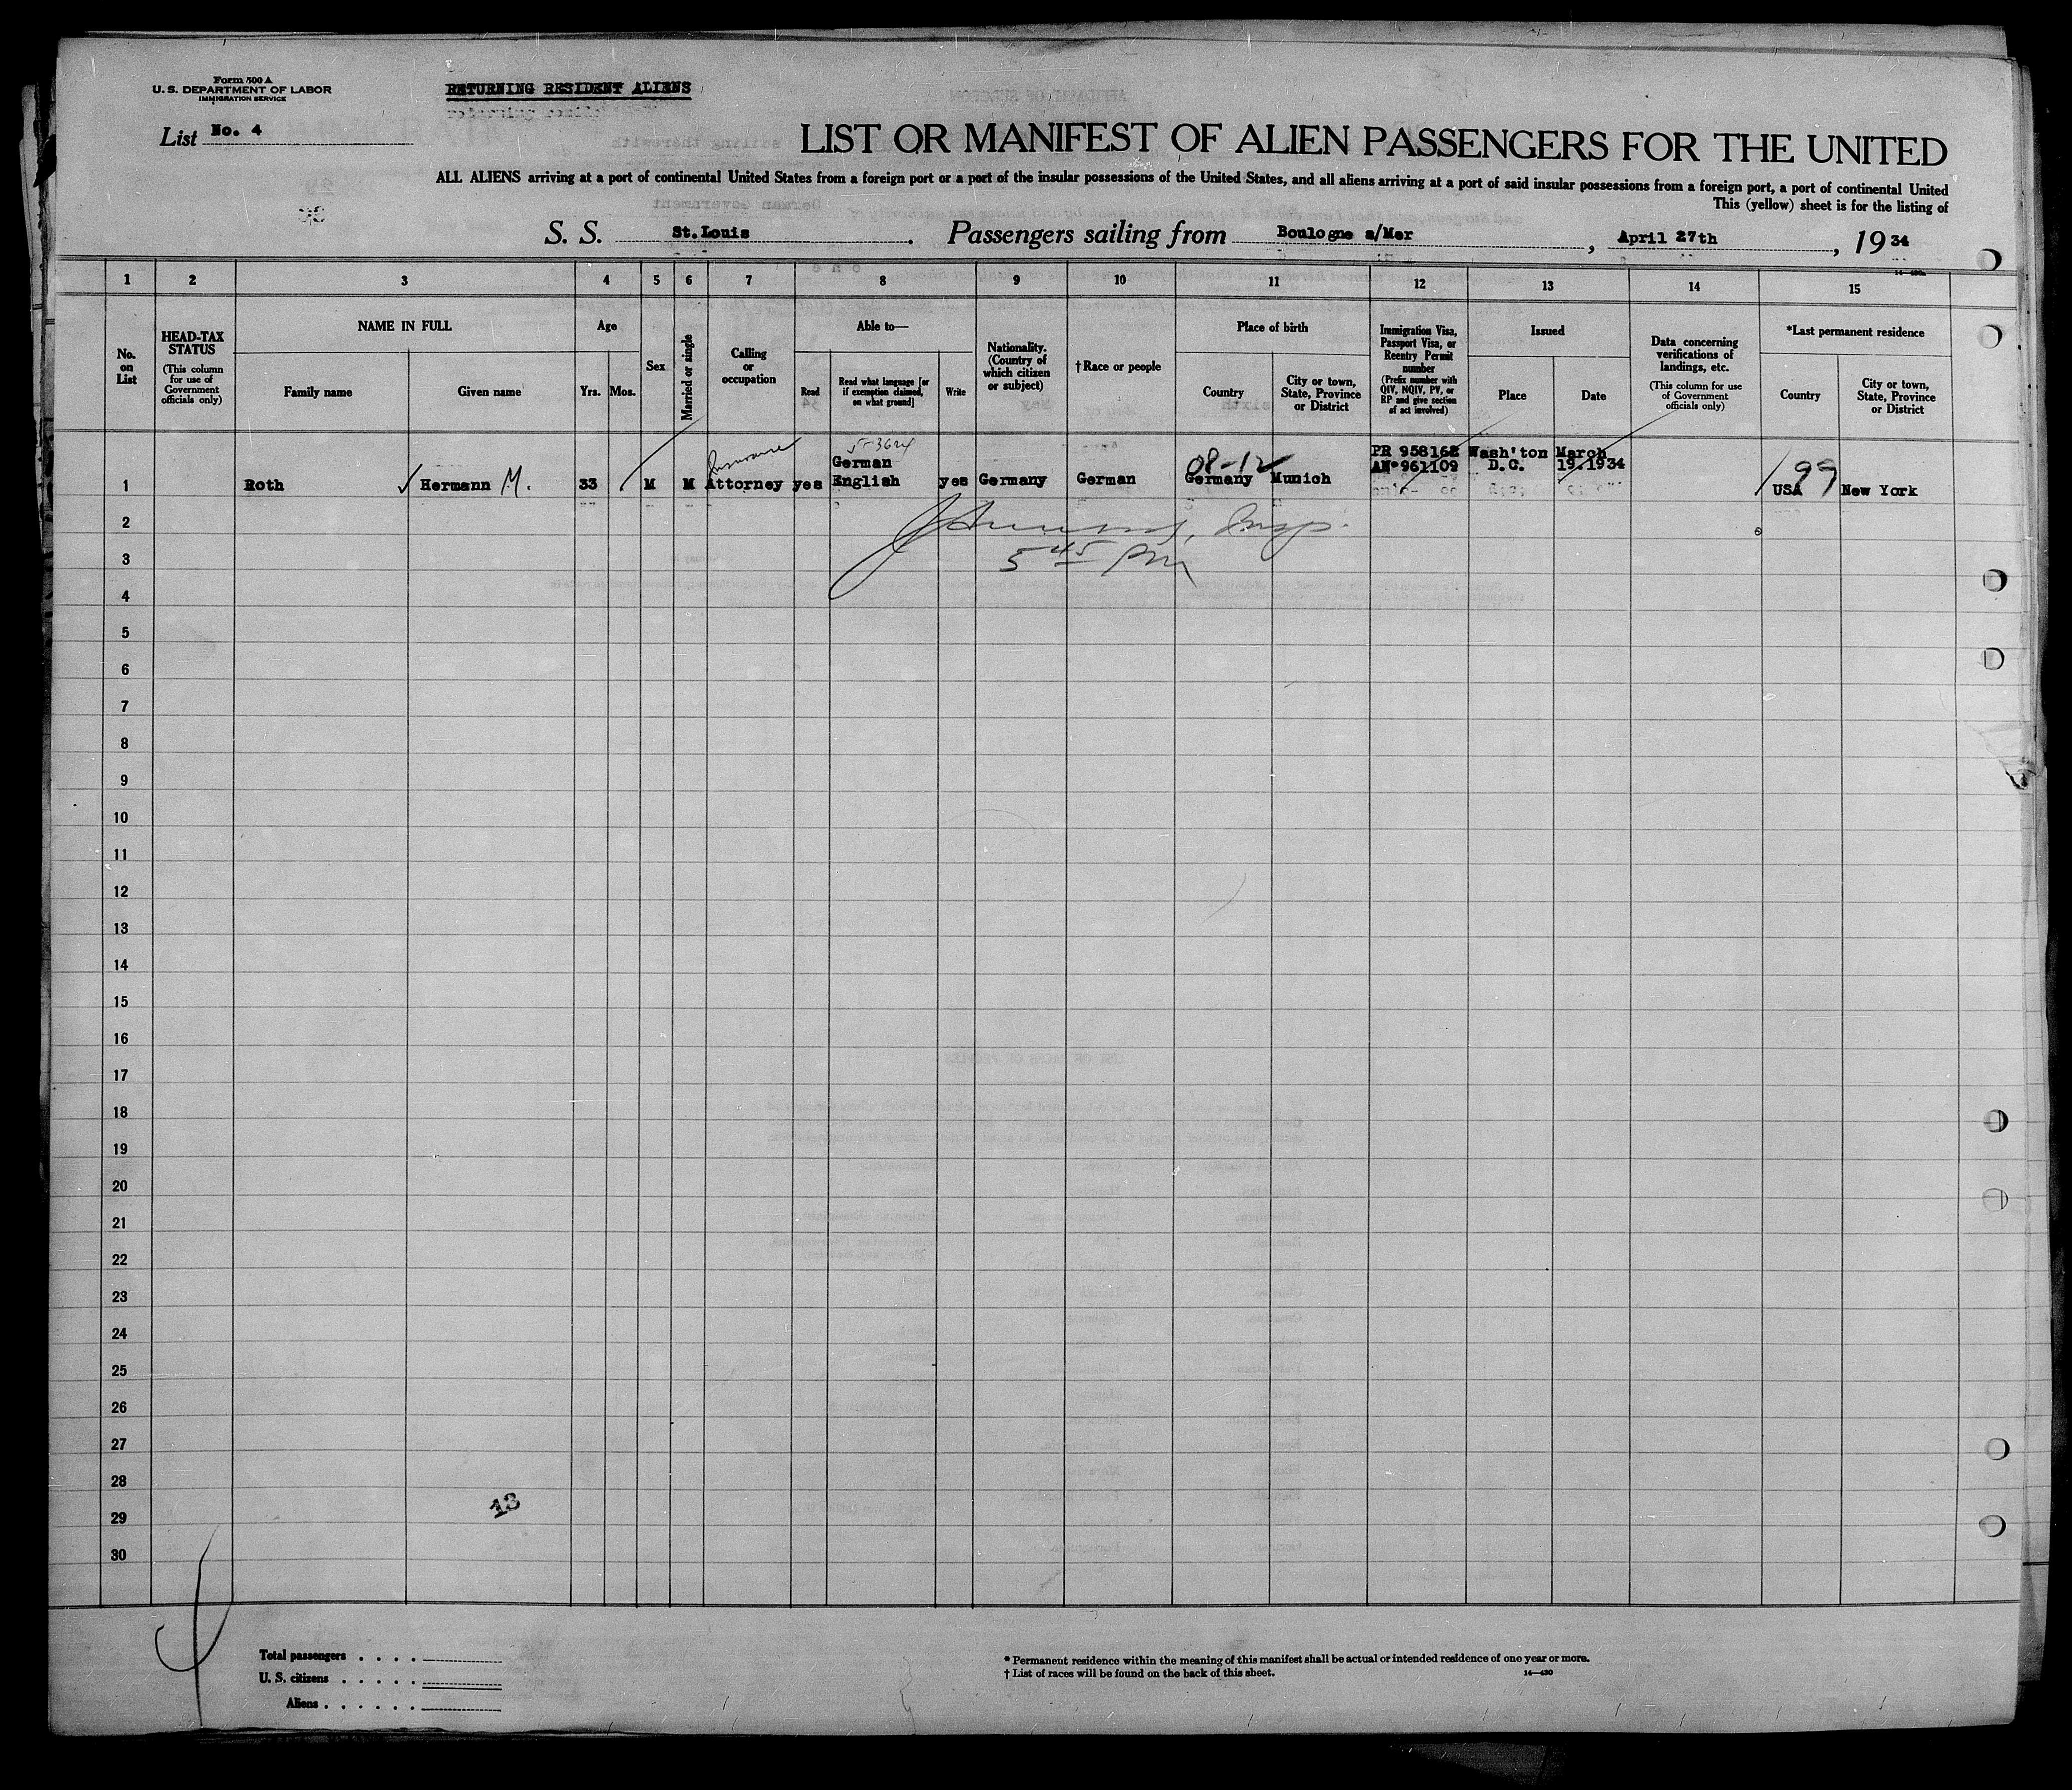 Form 500 A
U. S. DEPARTMENT OF LABOR
IMMIGRATION SERVICE
RETURNING RESIDENT ALIENS
List No. 4
LIST OR MANIFEST OF ALIEN PASSENGERS FOR THE UNITED
ALL ALIENS arriving at a port of continental United States from a foreign port or a port of the insular possessions of the United States, and all aliens arriving at a port of said insular possessions from a foreign port, a port of continental United
This (yellow) sheet is for the listing of
S. S. St.Louis. Passengers sailing from Boulogne s/Mer, April 27th, 1934
1 2 3 4 5 6 7 8 9 10 11 12 13 14 15
No. on List
HEAD-TAX STATUS
(This column for use of Government officials only)
NAME IN FULL
Family name
Given name
Age
Yrs.
Mos.
Sex
Married or single
Calling or occupation
Able to—
Read
Read what language [or if exemption claimed, on what ground]
Write
Nationality. (Country of which citizen or subject)
†Race or people
Place of birth
Country
City or town, State, Province or District
Immigration Visa, Passport Visa, or Reentry Permit number
(Prefix number with QIV, NQIV, PV, or RP and give section of act involved)
Issued
Place
Date
Data concerning verifications of landings, etc.
(This column for use of Government officials only)
*Last permanent residence
Country
City or town, State, Province or District
Insurance
German
08-12
PR 958162 Wash'ton March
AN° 961109 D.C. 19.1934
1 Roth Hermann M. 33 M M Attorney yes English yes Germany German Germany Munich USA 99 New York
2
5 45 PM
3
4
5
6
7
8
9
10
11
12
13
14
15
16
17
18
19
20
21
22
23
24
25
26
27
28
13
29
30
Total passengers
U. S. citizens
Aliens
* Permanent residence within the meaning of this manifest shall be actual or intended residence of one year or more.
† List of races will be found on the back of this sheet.
14—430